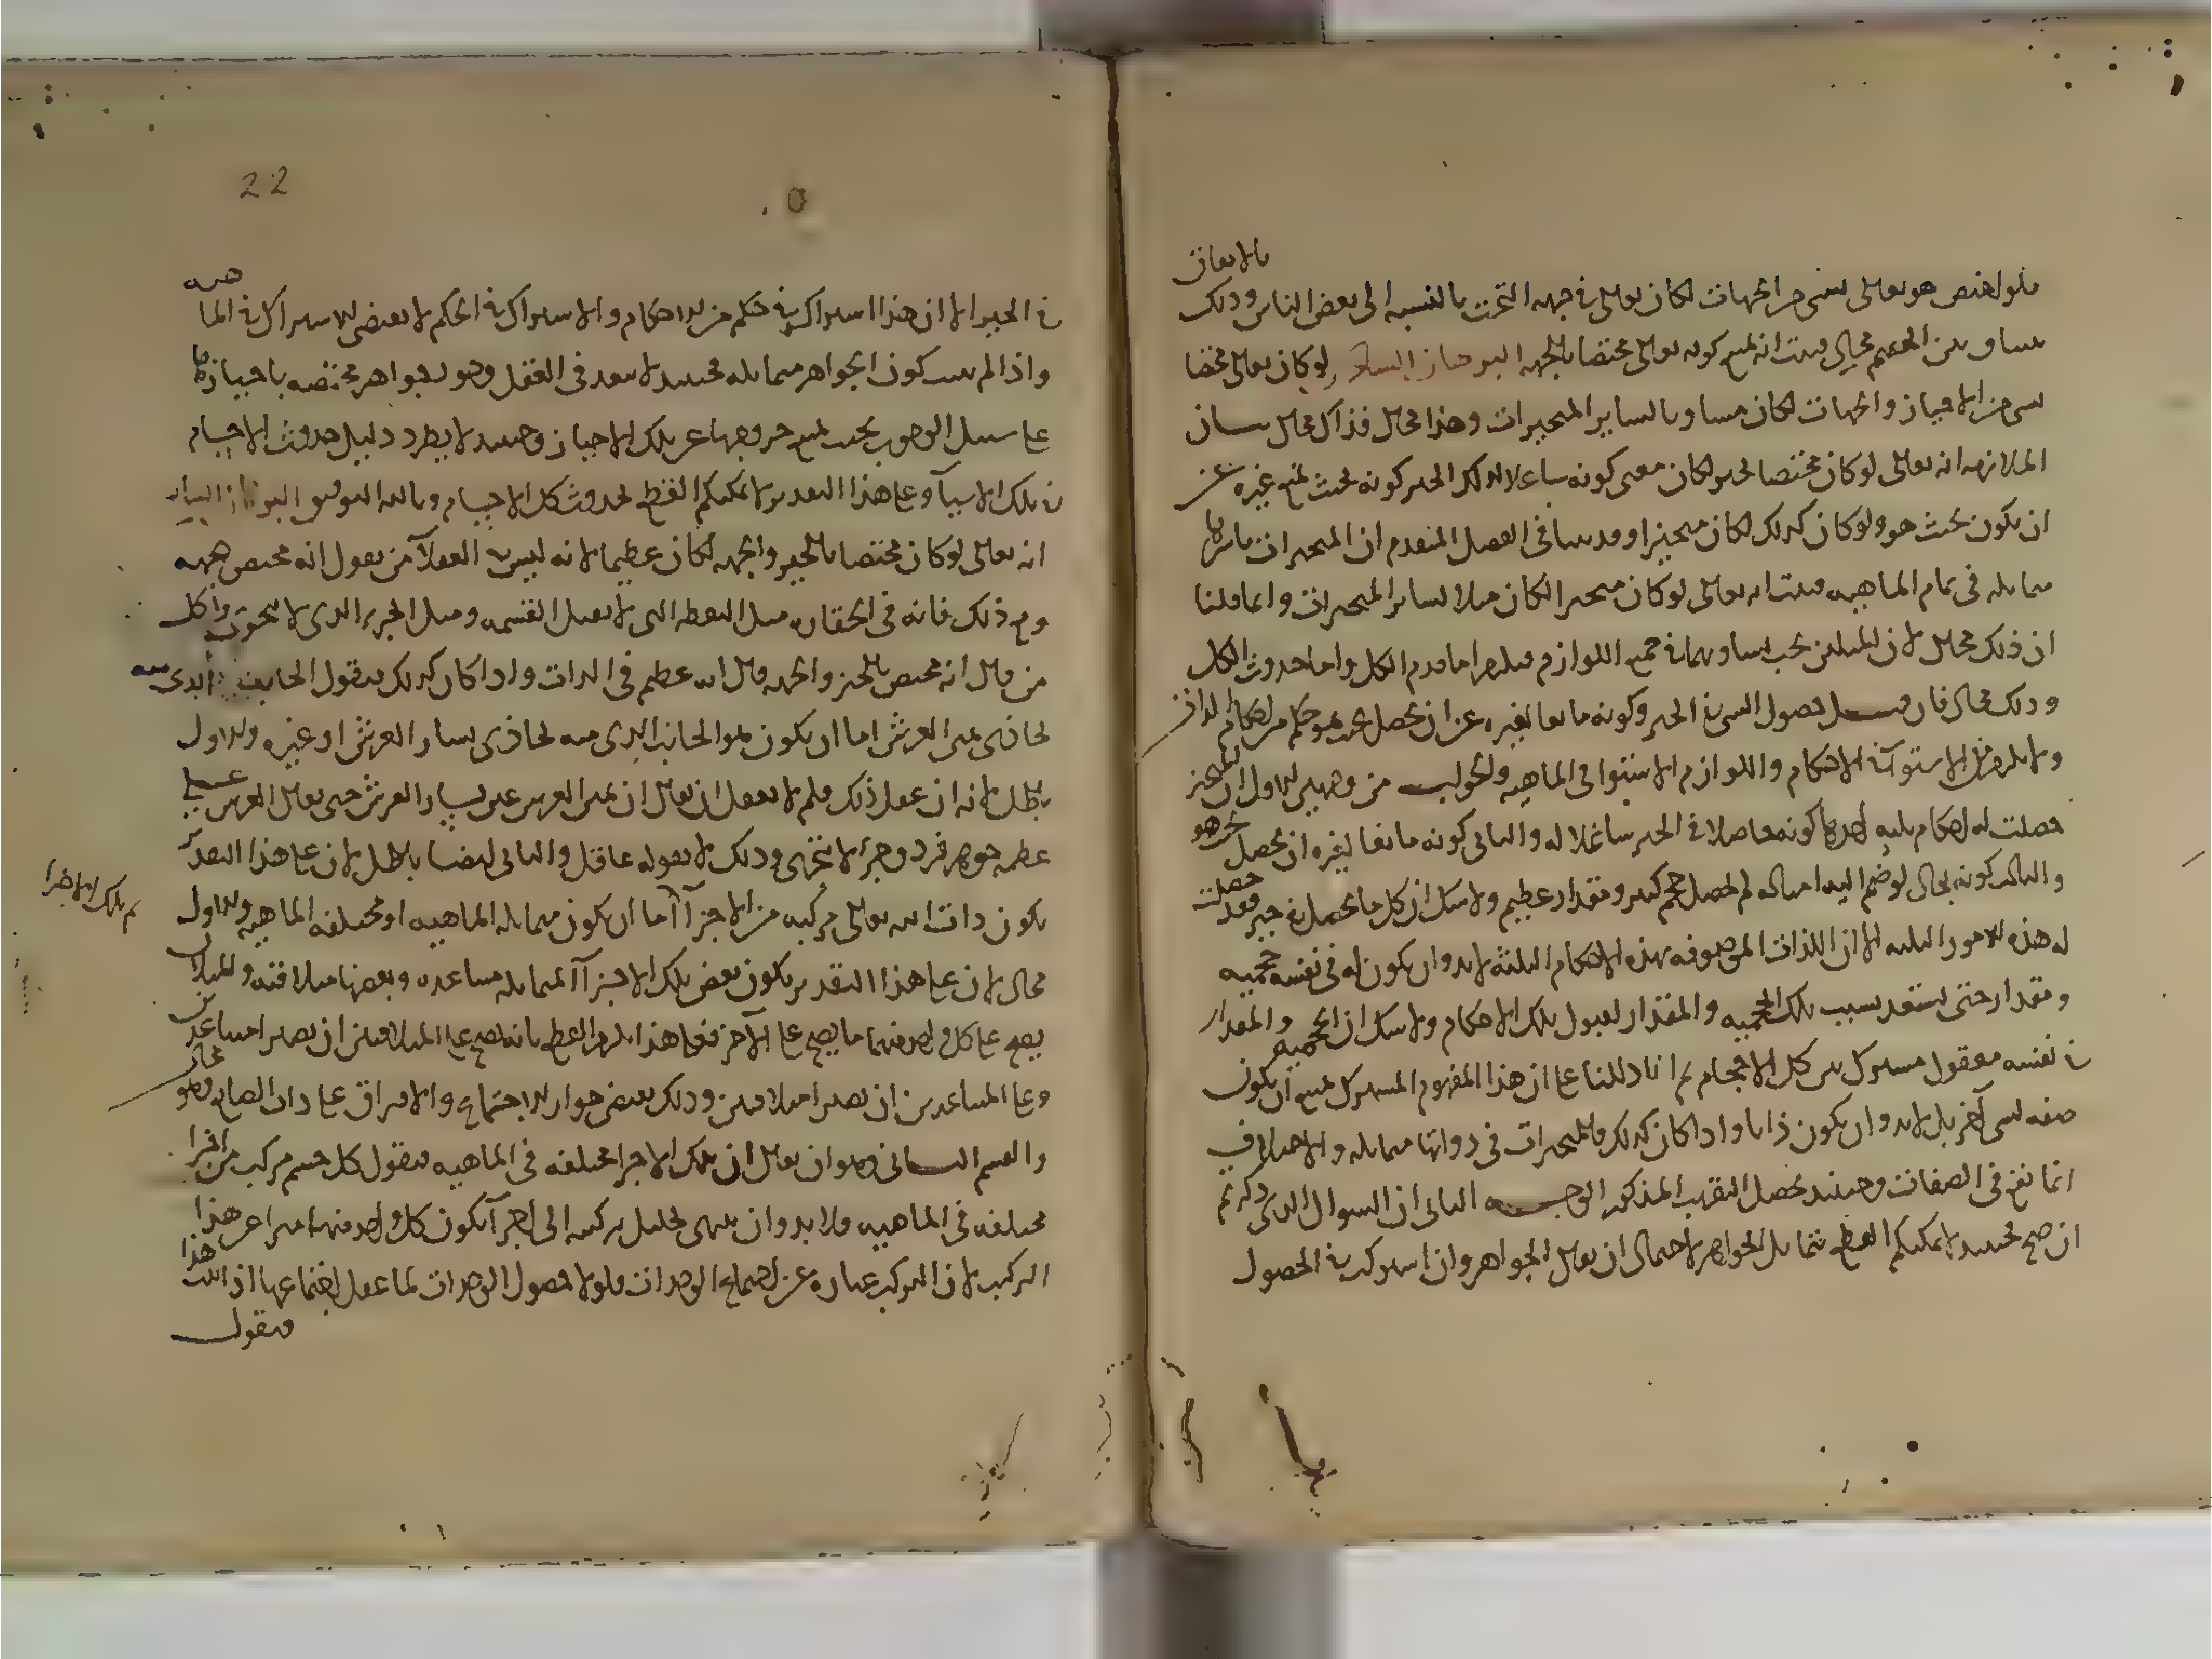 فلو اختص هو تعالى بشي من الجهات لكان تعالى في جهة التحت بالنسبه الى بعض الناس وذلك
بالاتفاق
بيننا وبين الخصم محال فثبت انه يمتنع كونه تعالى مختصا بالجهه البرهان السادس لو كان تعالى مختصا
بشي من الاحياز والجهات لكان مساويا لساير المتحيزات وهذا محال فذاك محال بيان
الملازمه انه تعالى لو كان مختصا بحيز لكان معنى كونه شاغلا لذلك الحيز كونه بحيث يمنع غيره عن
ان يكون بحيث هو ولو كان كذلك لكان متحيزا وقد بينا في الفصل المتقدم ان المتحيزات باسرها
متماثله في تمام الماهيه فثبت انه تعالى لو كان متحيزا لكان مثلا لساير المتحيزات وانما قلنا
ان ذلك محال لان المثلين يجب تساويهما في جميع اللوازم فيلزم اما قدم الكل واما حدوث الكل
وذلك محال فان قيل حصول الشي في الحيز وكونه مانعا لغيره عن ان يحصل بحيث هو حكم من احكام الذات
ولا يلزم من الاستوآ في الاحكام واللوازم الاستوا في الماهيه والجواب من وجهين الاول ان المتحيز
حصلت له احكام ثلثه احدها كونه حاصلا في الحيز شاغلا له والثاني كونه مانعا لغيره ان يحصل بحيث هو
والثالث كونه بحال لو ضم اليه امثاله لم لحصل حجم كبير ومقدار عظيم ولا شك ان كل ما يحصل في حيز فقد حصلت
له هذه الامور الثلثه الا ان الذات الموصوفه بهذه الاحكام الثلثة لابد وان يكون له في نفسه حجميه
ومقدار حتى يستعد بسبب تلك الحجميه والمقدار لقبول تلك الاحكام ولا شك ان الحجميه والمقدار
في نفسه معقول مشترك بين كل الاحجام ثم انا دللنا على ان هذا المفهوم المشترك يمتنع ان يكون
صفه لشي آخر بل لابد وان يكون ذاتا واذا كان كذلك فالمتحيزات في ذواتها متماثله والاختلاف
انما يقع في الصفات وحينئذ يحصل التقريب المذكور الوجه الثاني ان السوال الذي ذكرتم
ان صح فحينئذ لا يمكنكم القطع بتماثل الجواهر لاحتمال ان يقال الجواهر وان اشتركت في الحصول
22
في الحيز الا ان هذا اشتراك في حكم من الاحكام والاشتراك في الحكم لا يقتضي الاشتراك في الماهيه
واذا لم يثبت كون الجواهر متماثله فحينئذ لا يبعد في العقل وجود جواهر مختصه باحيازها
على سبيل الوجوب بحيث يمتنع خروجها عن تلك الاحياز وحينئذ لا يطرد دليل حدوث الاجسام
في تلك الاشيآ وعلى هذا التقدير لا يمكنكم القطع بحدوث كل الاجسام وبالله التوفيق البرهان السابع
انه تعالى لو كان مختصا بالحيز والجهه لكان عظيما لانه ليس في العقلآ من يقول انه مختص بجهه
ومع ذلك فانه في الحقاره مثل النقطه التي لا تقبل القسمه ومثل الجزء الذي لا يتجزى بل كل
من قال انه مختص بالحيز والجهه قال انه عظيم في الذات واذا كان كذلك فنقول الجانب الذي منه
يحاذي يمين العرش اما ان يكون هو الجانب الذي منه يحاذي يسار العرش او غيره والاول
باطل لانه ان عقل ذلك فلم لا يعقل ان يقال ان يمين العرش عين يسار العرش حتى يقال العرش على
عظمه جوهر فرد وجزء لا يتجزى وذلك لا يقوله عاقل والثاني ايضا باطل لان على هذا التقدير
يكون ذات الله تعالى مركبه من الاجزآ
ثم تلك الاجزا
اما ان يكون متماثله الماهيه او مختلفه الماهيه والاول
محال لان على هذا التقدير يكون بعض تلك الاجزآ المتماثله متباعده وبعضها متلاقيه والمثلان
يصح على كل واحد منهما ما يصح على الآخر فعلى هذا يلزم القطع بانه يصح على المتلاقيين ان يصيرا متباعدين
وعلى المتباعدين ان يصيرا متلاقيين وذلك يقتضي جواز الاجتماع والافتراق على ذات الصانع وهو محال
والقسم الثاني وهو ان يقال ان تلك الاجزا مختلفه في الماهيه فنقول كل جسم مركب من اجزا
مختلفه في الماهيه فلا بد وان ينتهي تحليل تركيبه الى اجزآ يكون كل واحد منها مبرا عن هذا
التركيب لان التركيب عباره عن اجتماع الوحدات فلولا حصول الوحدات لما عقل اجتماعها اذا ثبت هذا
فنقول